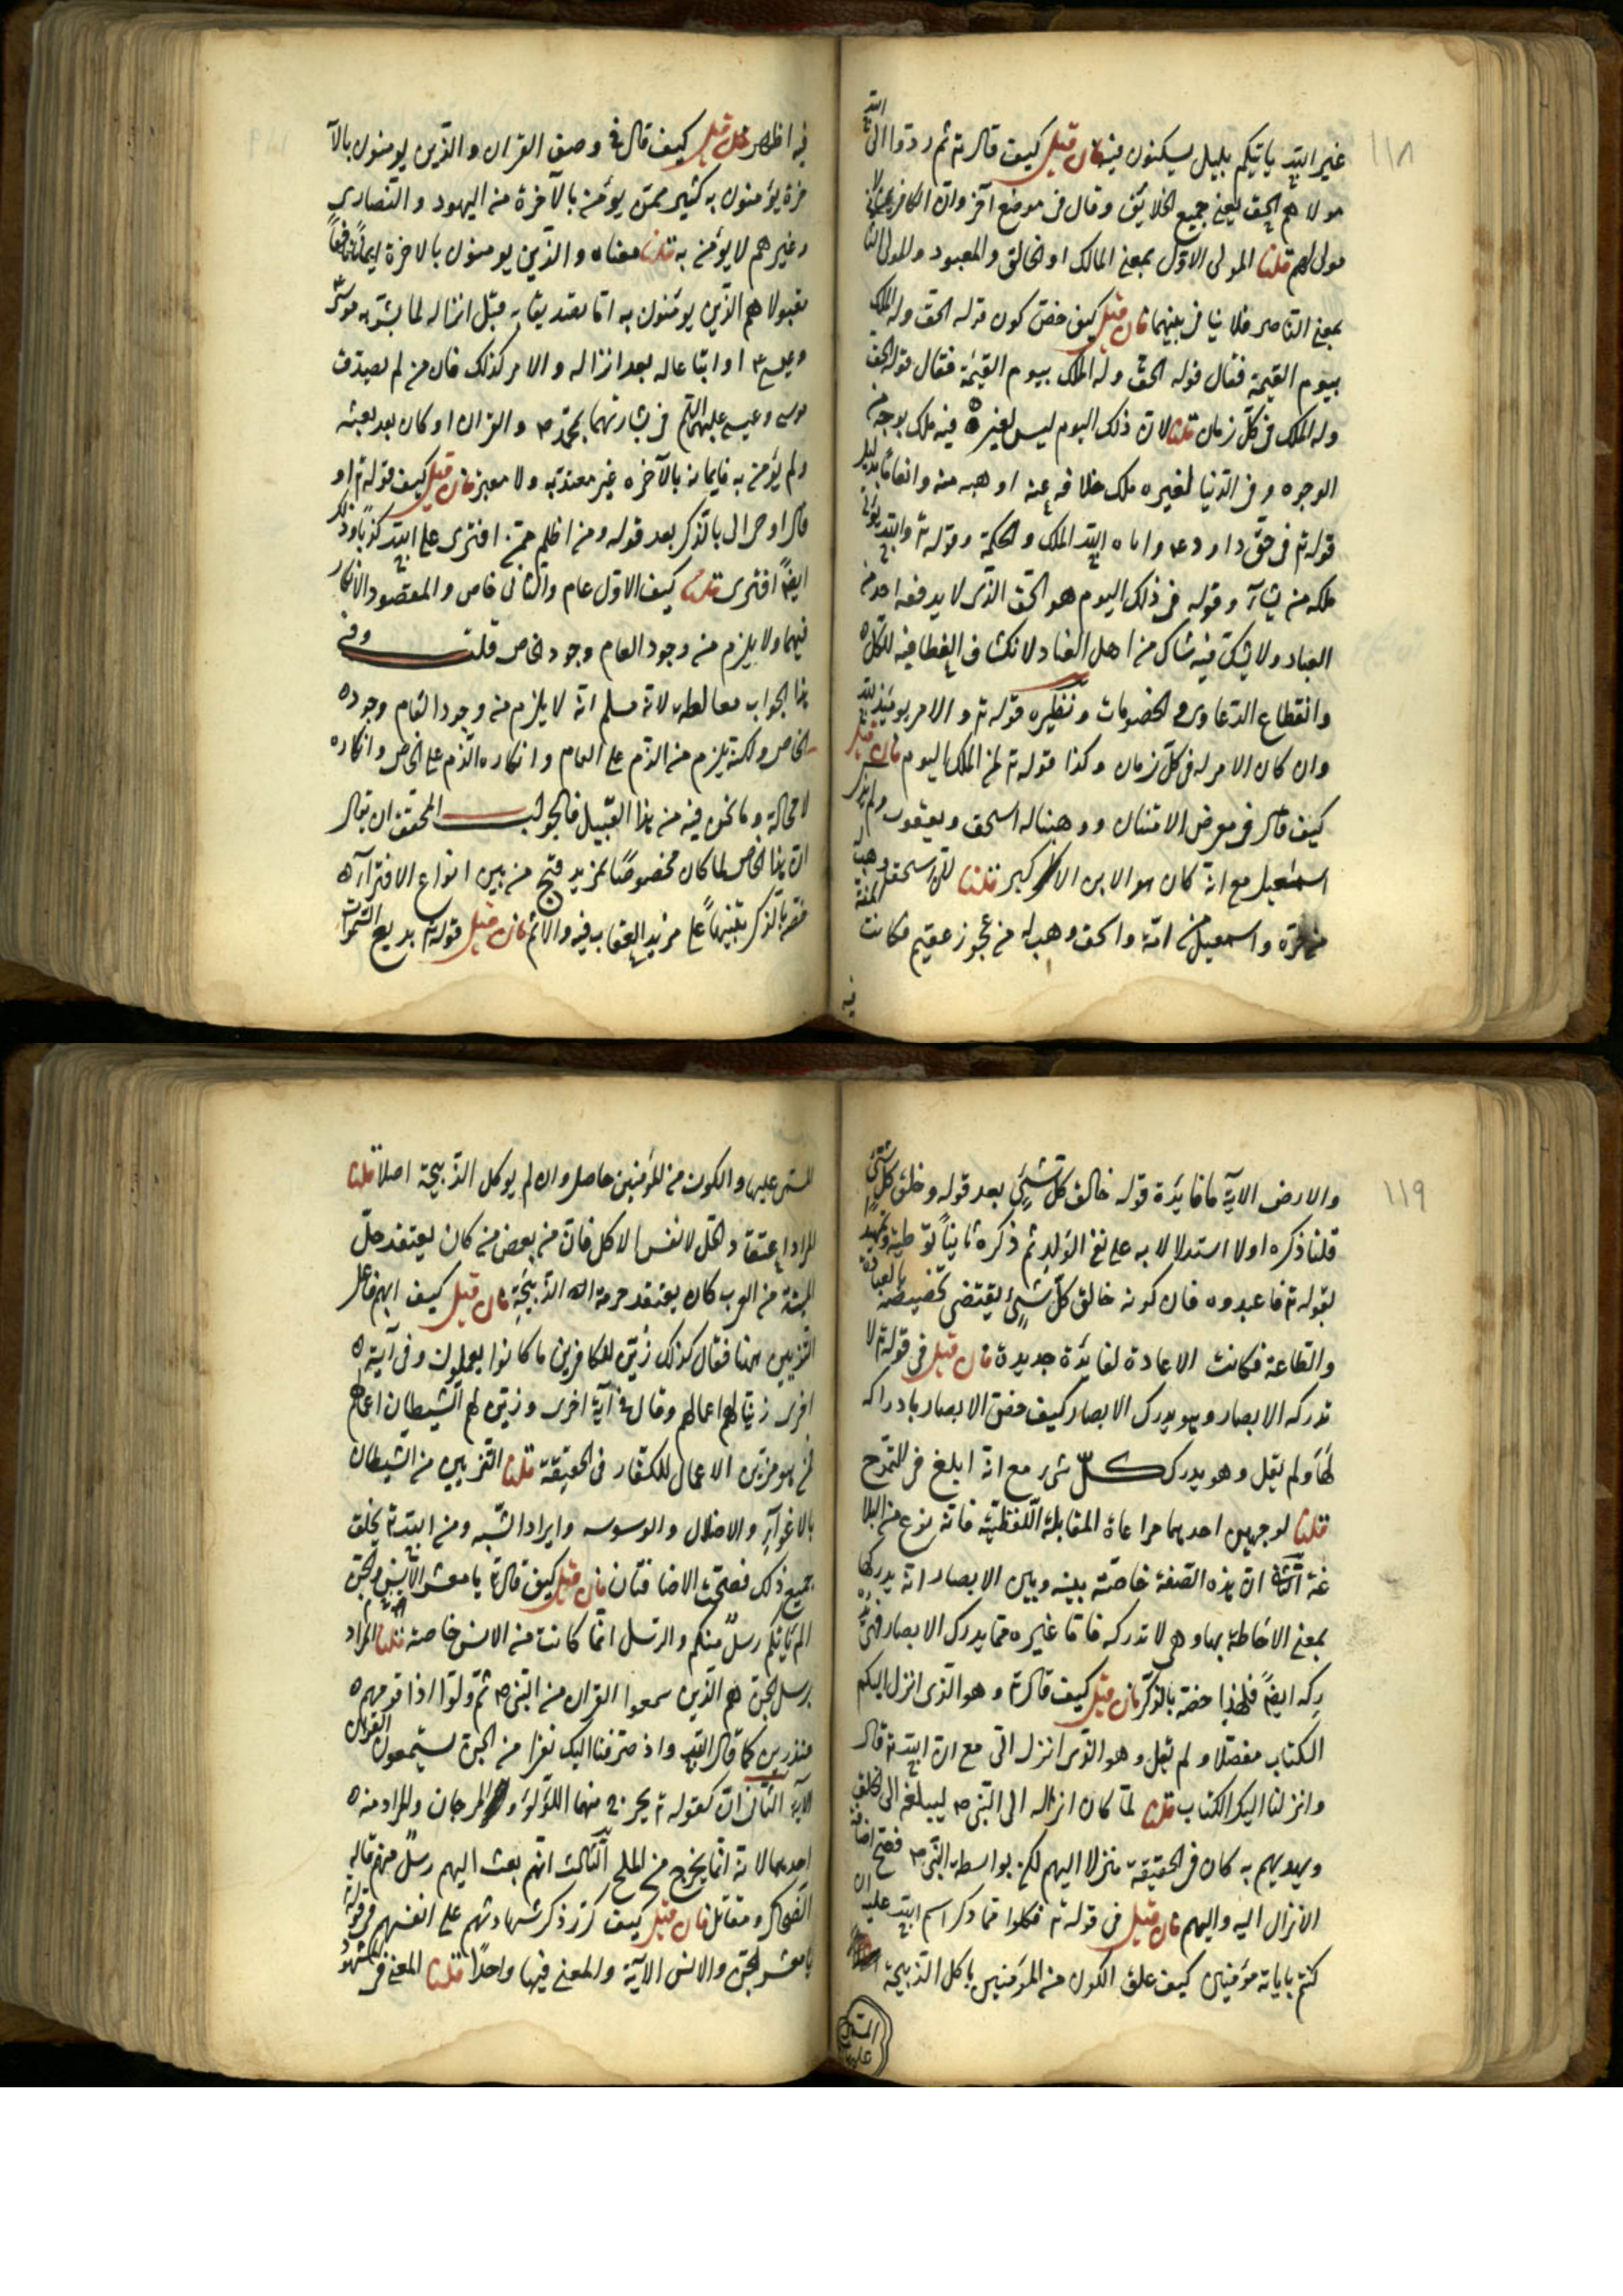 ١١٨
غير الله ياتيكم بليل يسكنون فيه فان قيل كيف قال تع ثم ردوا الى الله
مولاهم الحق يعنى جميع الخلايق وقال فى موضع آخر وان الكافرين لا
مولى لهم قلنا المولى الاول بمعنى المالك او الخالق والمعبود والمولى الثا
بمعنى الناصر فلا تنافى بينهما فان قيل كيف خص كون قوله الحق وله الملك
بيوم القيمة فقال قوله الحق وله الملك بيوم القيمة فقال قوله الحق
وله الملك فى كل زمان قلنا لان ذلك اليوم ليس لغيره فيه ملك بوجه من
الوجوه وفى الدنيا لغيره ملك خلافه عنه او هبه منه وانعاما بدليل
قوله تع فى حق داود ع م واتاه الله الملك والحكمة وقوله تع والله يؤتى
ملكه من يشآء وقوله فى ذلك اليوم هو الحق الذى لا يدفعه احد من
العباد ولا يشك فيه شاك من اهل العناد لانكشاف الغطا فيه للكل
وانقطاع الدعاوى والخصومات ونظيره قوله تع والامر يومئذ لله
وان كان الامر له فى كل زمان وكذا قوله تع لمن الملك اليوم فان قيل
كيف قال فى معرض الامتنان ووهبنا له اسحق ويعقوب ولم يذكر
اسمعيل مع انه كان هو الابن الاكبر قلنا لان اسحق وهبه
من حرة واسمعيل من امة واسحق وهب له من عجوز عقيم فكانت المنة
فيه
فيه اظهر فان قيل كيف قال فى وصف القران والذين يومنون بالآ
خرة يؤمنون به كثير ممن يؤمن بالآخرة من اليهود والنصارى
وغيرهم لا يؤمن به قلنا معناه والذين يومنون بالاخرة ايمانا نافعا
مقبولا هم الذين يومنون به اما تصديقا به قبل انزاله لما بشر به موسى
وعيسى ع م او اتباعا له بعد انزاله والامر كذلك فان من لم يصدق
موسى وعيسى عليهما السلم فى بشارتهما بمحمد ص والقران او كان بعد بعثه
ولم يؤمن به فايمانه بالآخره غير معتد به ولا معتبر فان قيل كيف قوله تع او
قال اوحى الى بالذكر بعد قوله ومن اظلم ممن افترى على الله كذبا وذلك
ايضا افترى قلنا كيف الاول عام والثانى خاص والمقصود الانكار
فيهما ولا يلزم من وجود العام وجود الخاص قلت وفى
هذا الجواب مغالطه لانه مسلم انه لا يلزم من وجود العام وجوده
الخاص ولكنه يلزم من الذم على العام وانكاره الذم على الخاص وانكاره
لا محالة وما نحن فيه من هذا القبيل فالجواب المحقق ان يقال
ان هذا الخاص لما كان مخصوصا بمزيد قبح من بين انواع الافترآء
خصه بالذكر تنبيها على مزيد العقاب فيه والاثم فان قيل قوله تع بديع السموات
١١٩
والارض الاية ما فايدة قوله خالق كل شئ بعد قوله وخلق كل شئ
قلنا ذكره اولا استدلالا به على نفى الولد ثم ذكره ثانيا توطئة وتمهيدا
لقوله تع فاعبدوه فان كونه خالق كل شئ يقتضى تخصيصه بالعبادة
والطاعة فكانت الاعادة لفايدة جديدة فان قيل فى قوله تع لا
تدركه الابصار وهو يدرك الابصار كيف خص الابصار بادراكه
لها ولم يقل وهو يدرك كل شئ مع انه ابلغ فى التمدح
قلنا لوجهين احدهما مراعاة المقابلة اللفظية فانه نوع من البلا
غة الثانى ان هذه الصفة خاصة بينه وبين الابصار انه يدركها
بمعنى الاحاطة بها وهى لا تدركه فاما غيره مما يدرك الابصار فهى تد
ركه ايضا فلهذا خصه بالذكر فان قيل كيف قال تع وهو الذى انزل اليكم
الكتاب مفصلا ولم يقل وهو الذى انزل الى مع ان الله تع قال
وانزلنا اليك الكتاب قلنا لما كان انزاله الى النبى ص ليبلغه الى الخلق
ويهديهم به كان فى الحقيقة منزلا اليهم لكن بواسطة النبى ص فصح اضافة
الانزال اليه واليهم فان قيل فى قوله تع فكلوا مما ذكر اسم الله عليه ان
كنتم باياته مؤمنين كيف علق الكون من المؤمنين باكل الذبيحة
المسمى عليها
المسمى عليها والكون من المؤمنين حاصل وان لم يوكل الذبيحة اصلا قلنا
المراد اعتقاد الحل لا نفس الاكل فان من بعض من كان يعتقد حل
الميتة من العرب كان يعتقد حرمة الذبيحة فان قيل كيف ابهم فاعل
التزيين هنا فقال كذلك زين للكافرين ما كانوا يعملون وفى آية
اخرى زينا لهم اعمالهم وقال فى آية اخرى وزين لهم الشيطان اعمالهم
فمن هو مزين الاعمال للكفار فى الحقيقة قلنا التزيين من الشيطان
بالاغوآء والاضلال والوسوسه وايراد الشبه ومن الله تع بخلق
جميع ذلك فصحت الاضافتان فان قيل كيف قال تع يا معشر الانس والجن
الم ياتكم رسل منكم والرسل انما كانت من الانس خاصة قلنا المراد
برسل الجن هم الذين سمعوا القران من النبى ص ثم ولوا اذا قومهم
منذرين كما قال الله واذ صرفنا اليك نفرا من الجن يستمعون القران
الآية الثانى ان كقوله تع يخرج منهما اللؤلؤ والمرجان والمراد منه
احدهما لانه انما يخرج من الملح الثالث انهم بعث اليهم رسل منهم قاله
الضحاك ومقاتل فان قيل كيف كرر ذكر شهادتهم على انفسهم فى قوله
يا معشر الجن والانس الآية والمعنى فيها واحدا قلنا المعنى فى المشهود